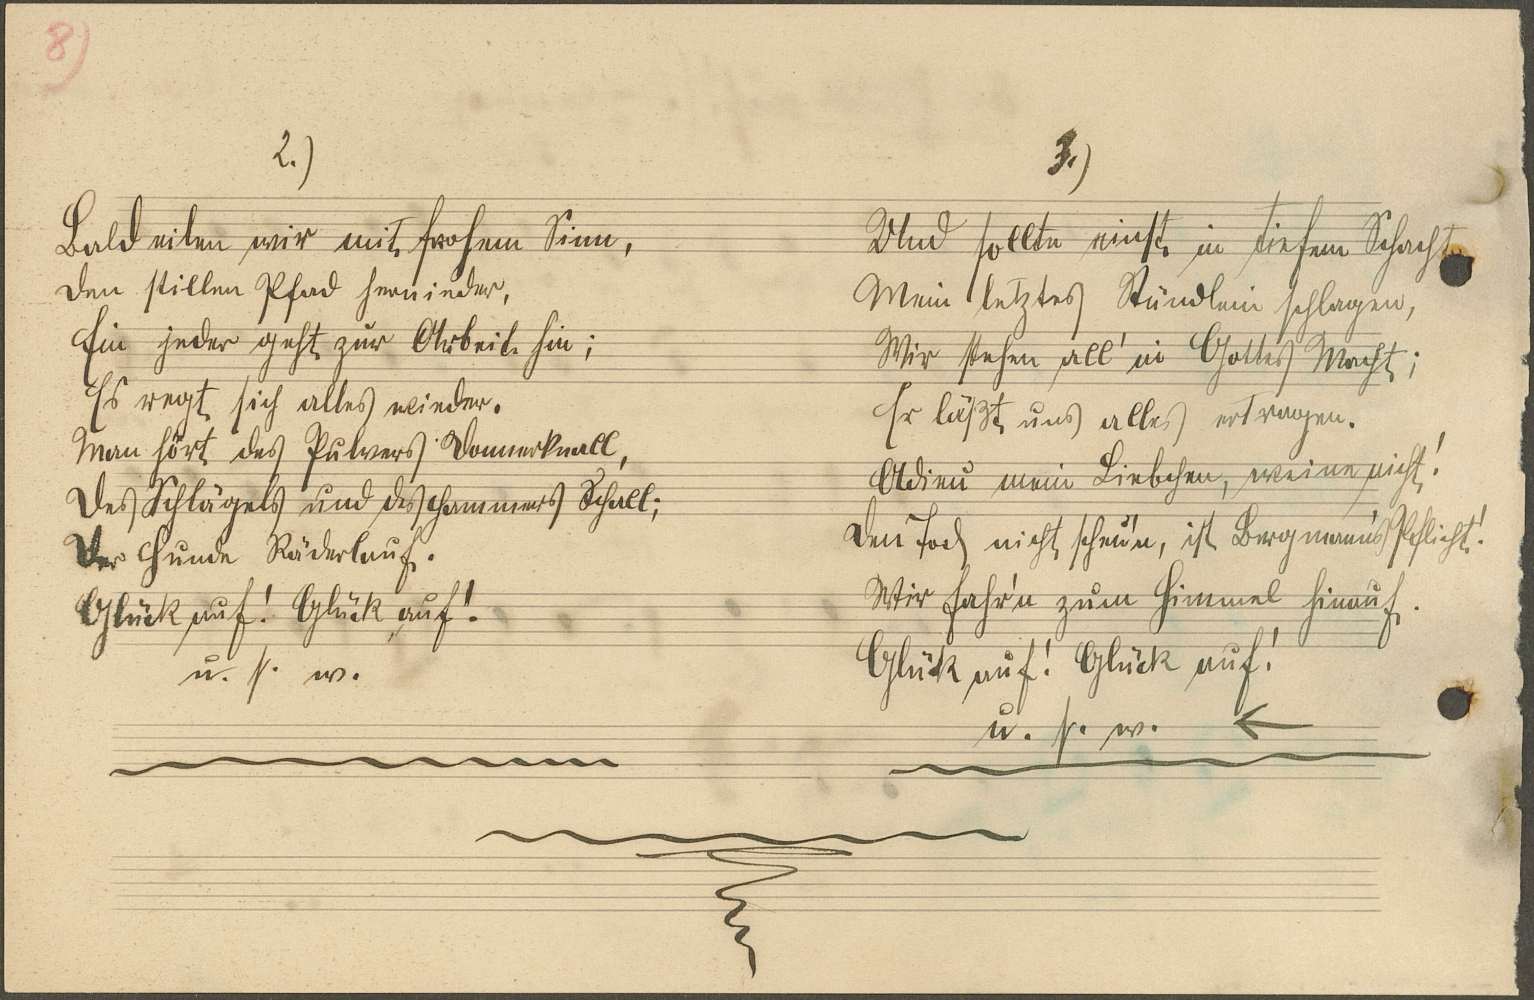 8)
2.)
Bald eilen wir mit frohem Sinn,
den stillen Pfad hernieder,
Ein jeder geht zur Arbeit hin;
Es regt sich alles wieder.
Man hört des Pulvers Donnerknall,
Des Schlägels und des Hammers Schall;
Der Hunde Räderlauf.
Glück auf! Glück auf!
u. s. w.
3.)
Und sollte einst in tiefem Schacht
Mein letztes Stündlein schlagen,
Wir stehen all' in Gottes Macht;
Er läßt uns alles ertragen.
Adieu mein Liebchen, weine nicht!
Den Tod nicht scheu'n, ist Bergmann's Pflicht!
Wir fahr'n zum Himmel hinauf.
Glück auf! Glück auf!
u. s. w. ←